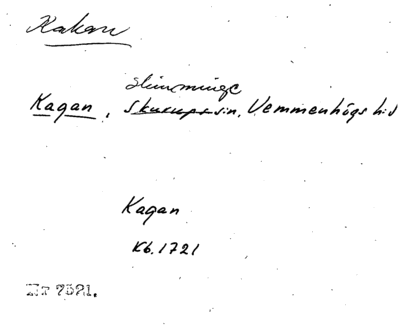 Kakan
Slimminge
Kagan, Skurups sn, Vemmenhögs hd
Kagan
Kb. 1721
Nr 7521.